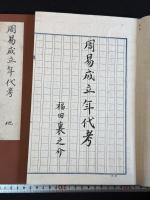 周易成立年代考
福田襄之介
周易成立年代考
地